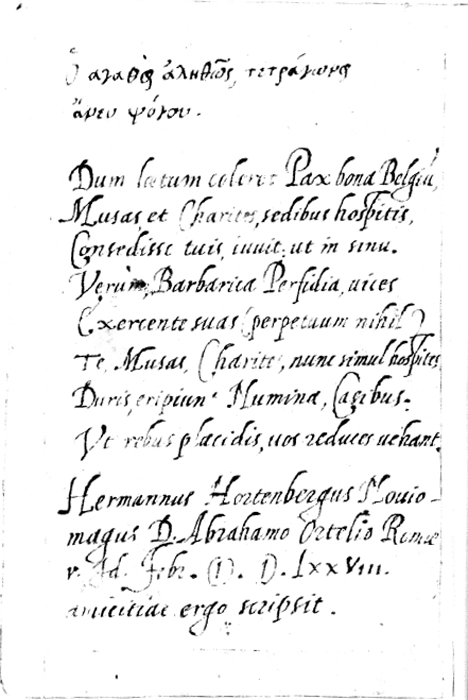 Ὁ ἀγαθὸς ἀληθῶς, τετράγωνος
ἄνευ ψόγου.
Dum lætum coleret Pax bona Belgiũ,
Musas, et Charites, sedibus hospitis,
Consedisse tuis, iuuit, ut in sinu.
Verùm, Barbarica Perfidia, uices
Exercente suas (perpetuum nihil)
Te, Musas, Charites, nunc simul hospites,
Duris, eripiunt Numina, Casibus.
Vt rebus placidis, uos reduces uehant.
Hermannus Hortenbergus Nouio-
magus D. Abrahamo Ortelio Romæ
Febr. LXXVIII.
amicitiae ergo scripsit.